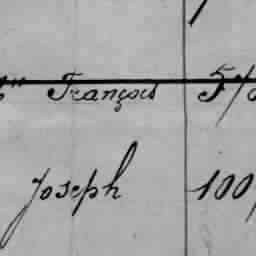 François
Joseph 100